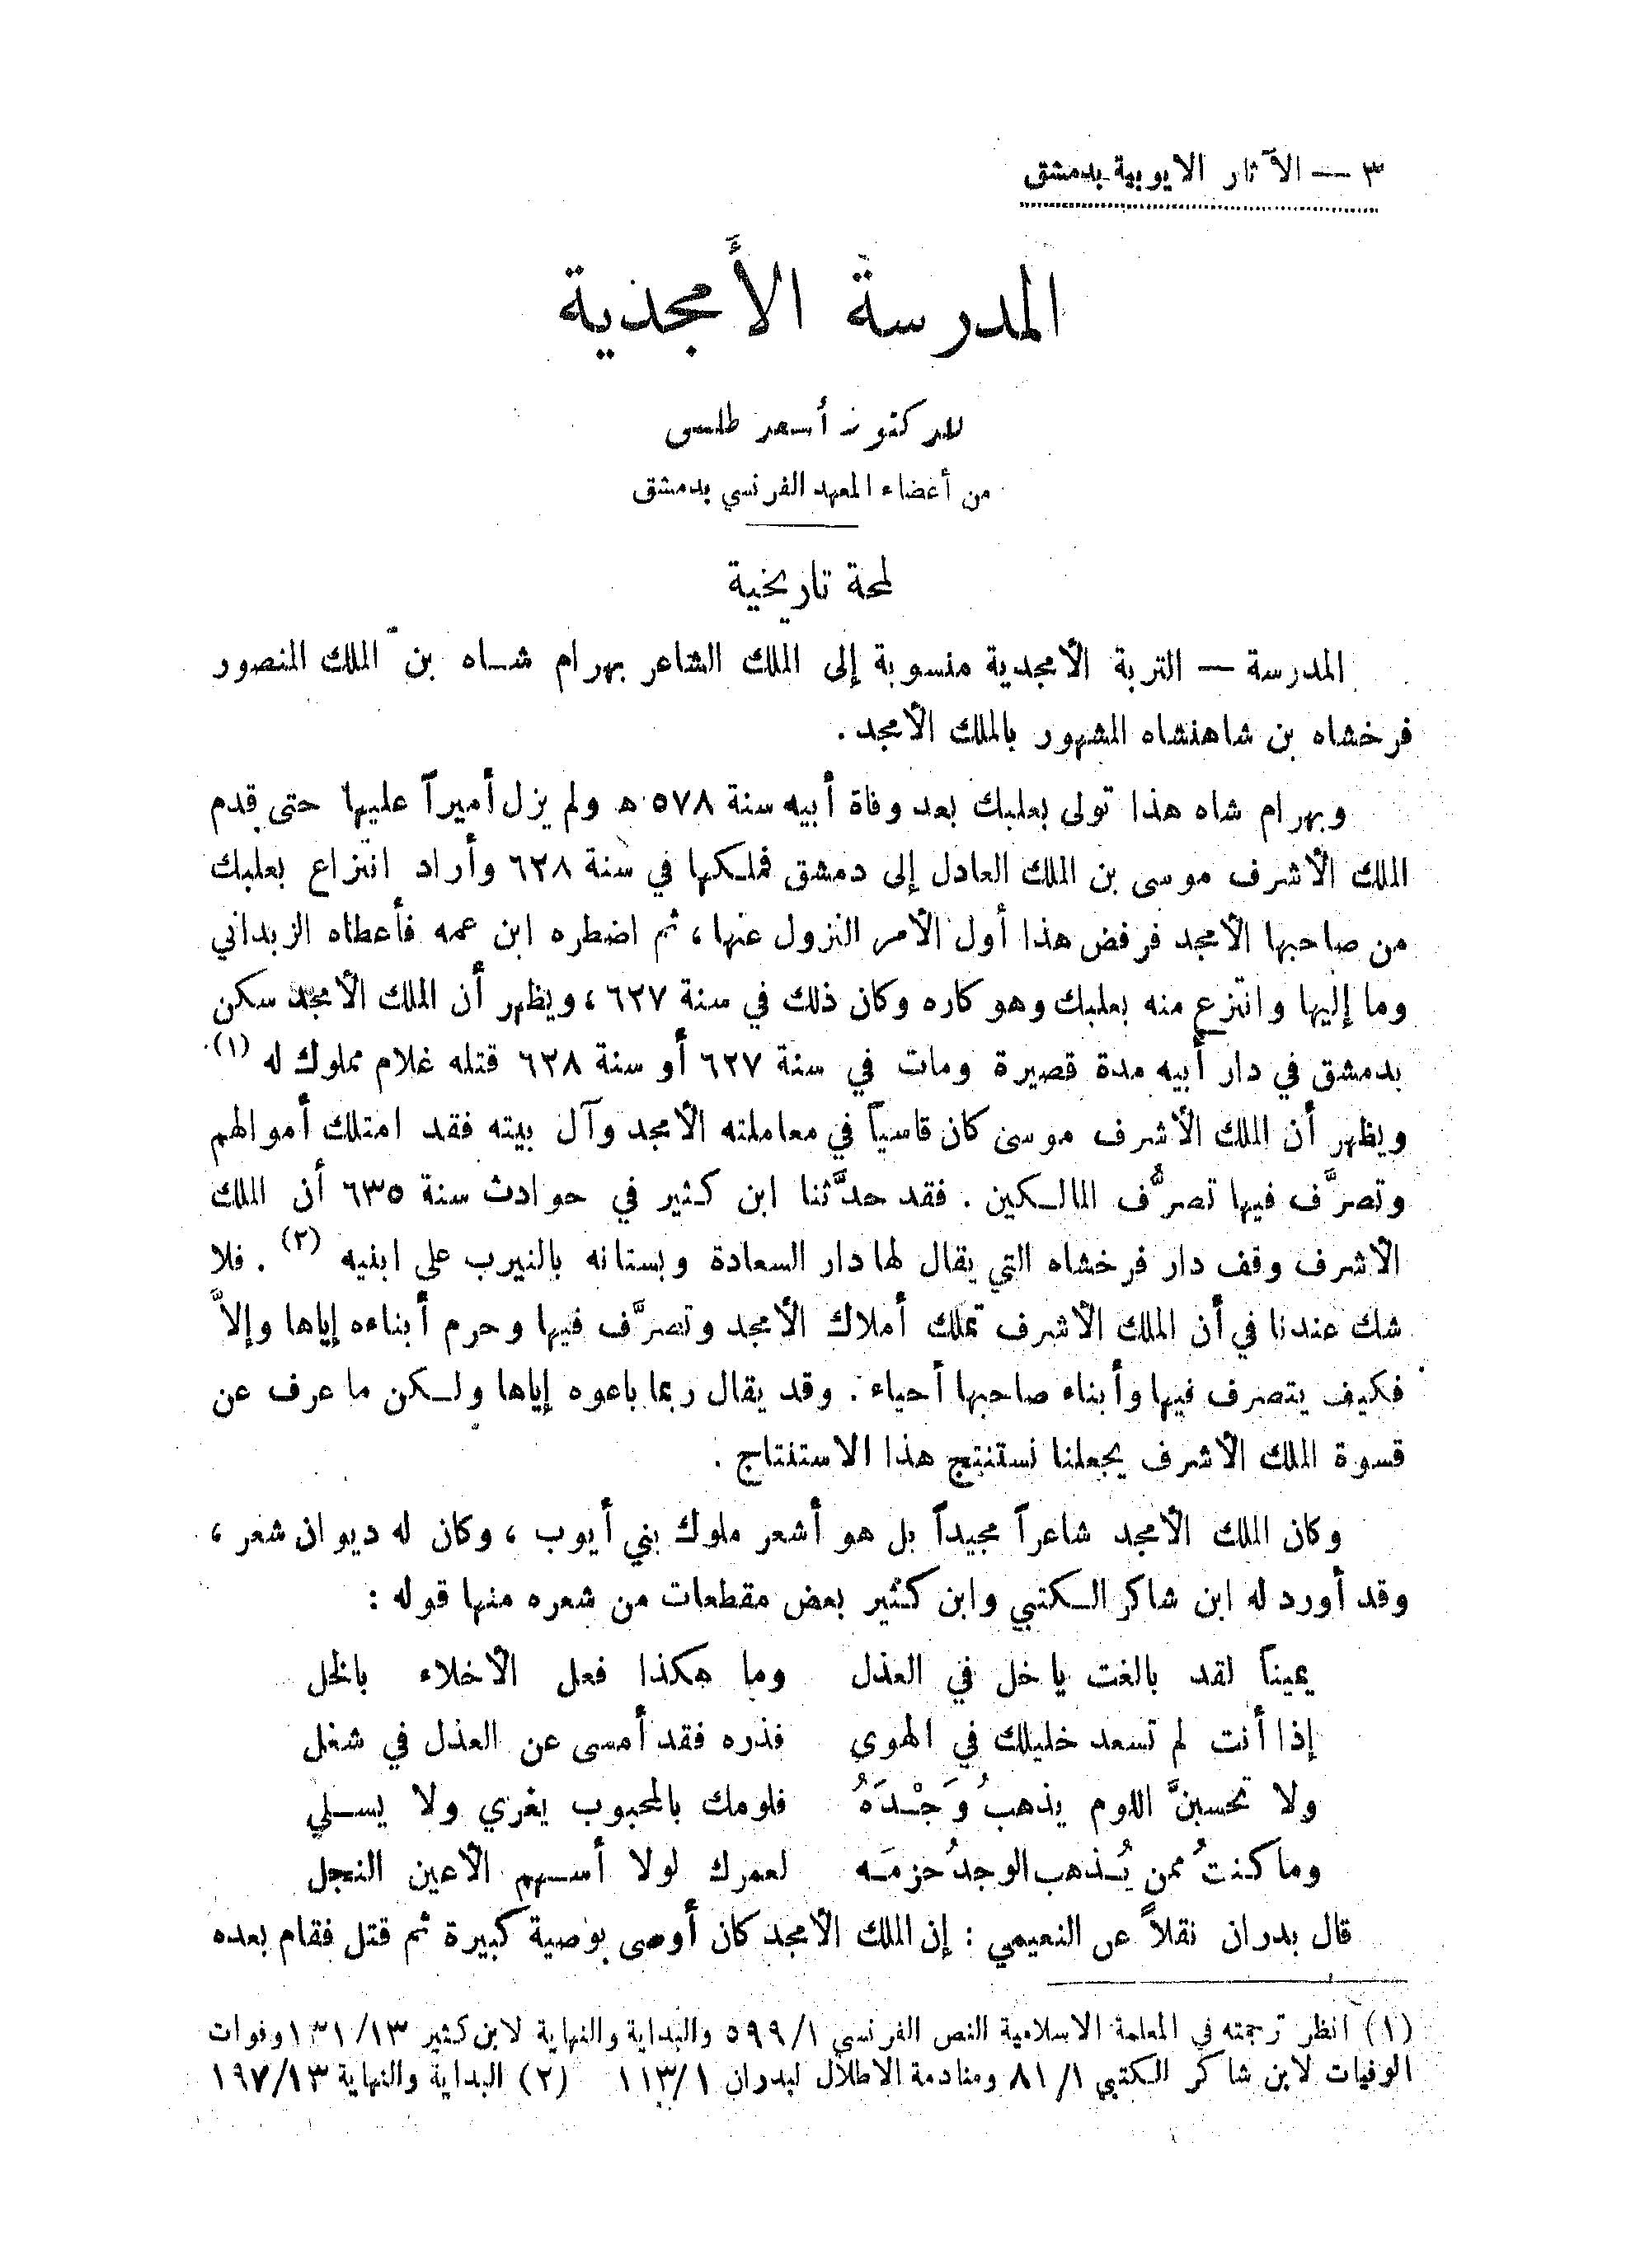 ٣ — الآثار الايوبية بدمشق
المدرسة الأمجذية
للدكتور أسعد طلس
من أعضاء المعهد الفرنسي بدمشق
لمحة تاريخية
المدرسة — التربة الأمجدية منسوبة إلى الملك الشاعر بهرام شاه بن الملك المنصور
فرخشاه بن شاهنشاه المشهور بالملك الأمجد .
وبهرام شاه هذا تولى بعلبك بعد وفاة أبيه سنة ٥٧٨ ه ولم يزل أميراً عليها حتى قدم
الملك الأشرف موسى بن الملك العادل إلى دمشق فملكها في سنة ٦٢٨ وأراد انتزاع بعلبك
من صاحبها الأمجد فرفض هذا أول الأمر النزول عنها ، ثم اضطره ابن عمه فأعطاه الزبداني
وما إليها وانتزع منه بعلبك وهو كاره وكان ذلك في سنة ٦٢٧ ، ويظهر أن الملك الأمجد سكن
بدمشق في دار أبيه مدة قصيرة ومات في سنة ٦٢٧ أو سنة ٦٢٨ قتله غلام مملوك له (١).
ويظهر أن الملك الأشرف موسى كان قاسياً في معاملته الأمجد وآل بيته فقد امتلك أموالهم
وتصرَّف فيها تصرُّف المالكين . فقد حدَّثنا ابن كثير في حوادث سنة ٦٣٥ أن الملك
الأشرف وقف دار فرخشاه التي يقال لها دار السعادة وبستانه بالنيرب على ابنيه (٢) . فلا
شك عندنا في أن الملك الأشرف تملك أملاك الأمجد وتصرَّف فيها وحرم أبناءه إياها وإلاَّ
فكيف يتصرف فيها وأبناء صاحبها أحياء . وقد يقال ربما باعوه إياها ولكن ما عرف عن
قسوة الملك الأشرف يجعلنا نستنتج هذا الاستنتاج .
وكان الملك الأمجد شاعراً مجيداً بل هو أشعر ملوك بني أيوب ، وكان له ديوان شعر ،
وقد أورد له ابن شاكر الكتبي وابن كثير بعض مقطعات من شعره منها قوله :
يميناً لقد بالغت يا خل في العذل وما هكذا فعل الأخلاء بالخل
إذا أنت لم تسعد خليلك في الهوى فذره فقد أمسى عن العذل في شغل
ولا تحسبنَّ اللوم يذهبُ وَجْدَهُ فلومك بالمحبوب يغري ولا يسلي
وما كنتُ ممن يُذهب الوجدُ حزمَه لعمرك لولا أسهم الأعين النجل
قال بدران نقلاً عن النعيمي : إن الملك الأمجد كان أوصى بوصية كبيرة ثم قتل فقام بعده
(١) انظر ترجمته في المعلمة الاسلامية النص الفرنسي ٥٩٩/١ والبداية والنهاية لابن كثير ١٣١/١٣ وفوات
الوفيات لابن شاكر الكتبي ٨١/١ ومنادمة الاطلال لبدران ١١٣/١ (٢) البداية والنهاية ١٩٧/١٣